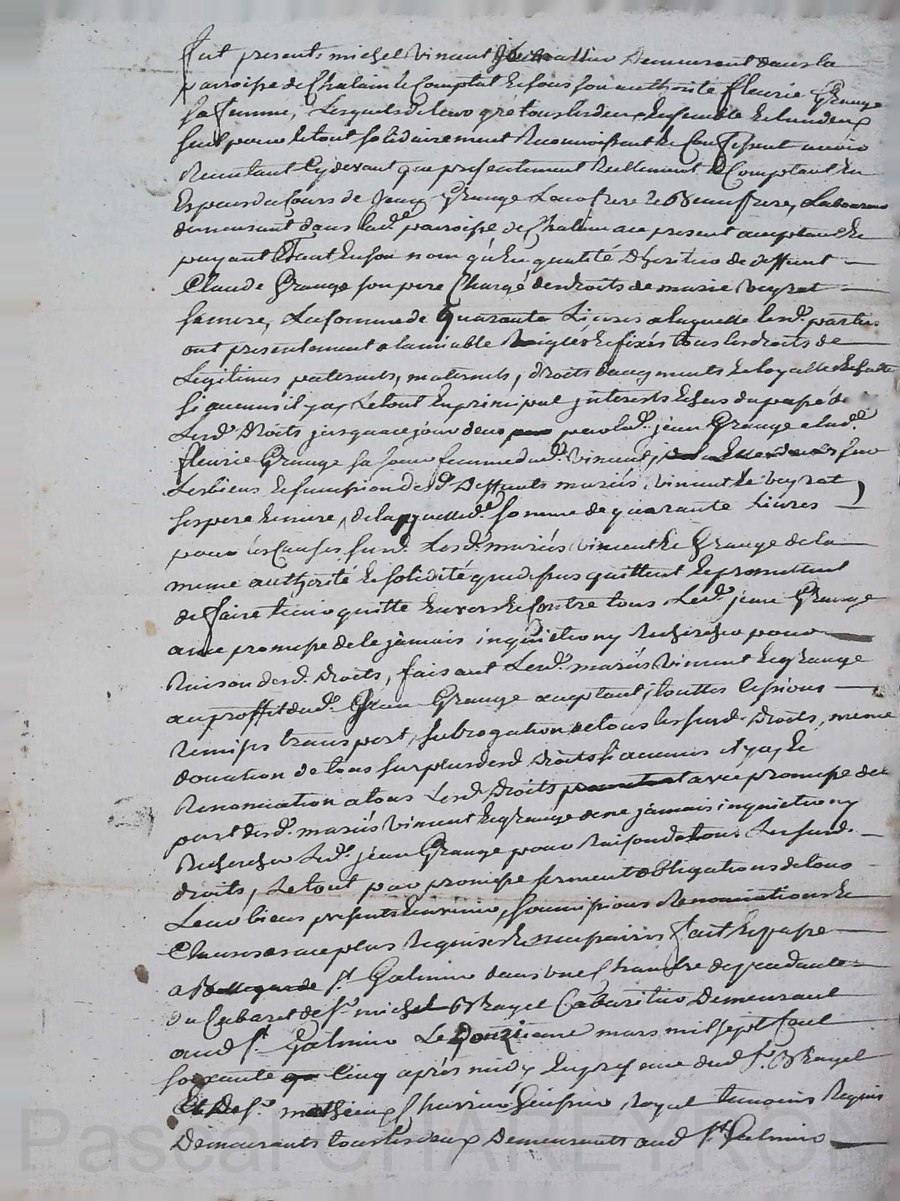 fut presents michel vincent demeurant dans la
parroisse de Chalain le Comptal et sous son authorité fleurie Grange
sa femme, Lesquels de leur gré tous les deux Ensemble et lun deux
seul pour le tout solidairement Reconnoissent et Confessent avoir
Receu tant Cy devant que presentement Reellement et Comptant En
Especes du Cours de Jean Grange Leur frere et Beaufrere, Laboureur
demeurant dans lad. parroisse de Chalain a ce present acceptant et
payant tant En son nom qu'En qualité D'héritier de deffunt
Claude Grange son pere Chargé des droits de marie veyrat
sa mere, La somme de Quarante Livres a laquelle lesd. parties
ont presentement a lamiable Reiglé et fixés tous les droits de
Legitimes paternels, maternels, droits daugments
si aucuns il y a, Le tout En principal interests du passé de
Lesd. Droits jusqua ce jour deus par led. jean Grange a lad.
fleurie Grange sa sœur femme dud. vincent sur
Les biens et succession desd. Deffunts mariés vincent et veyrat
ses pere et mere, de laquelle d. somme de quarante Livres
pour les Causes susd. Lesd. mariés vincent et Grange de la
meme authorité et solidité que dessus quittent et promettent
de faire tenir quitte Envers et contre tous Led. jean Grange
avec promesse de le jamais inquietter ny Rechercher pour
Raison desd. droits, faisant Lesd. mariés vincent et grange
au proffit dud. Jean Grange acceptant, touttes Cessions
Remises transport, subrogation de tous les susd. Droits, meme
donation de tous surplus desd. droits si aucuns il y a, et
Renonciation a tous Lesd. Droits avec promesse de la
part desd. mariés vincent et grange de ne jamais inquietter ny
Rechercher Led. jean Grange pour Raison de tous Les susd.
droits, Le tout par promesse serment obligations de tous
Leur biens presents et avenir, soumissions Renonciations et
Clauses au plus Requises et necessaires fait et passé
a St. Galmier dans une Chambre dependante
du Cabaret de Sr. michel Brayet Cabaretier Demeurant
aud St Galmier Le Douzieme mars mil sept Cent
soixante Cinq après midy En presence dud Sr. Brayet
Et De Sr. mathieu huissier Royal temoins Requis
Demeurants tous les deux Demeurants aud St Galmier
Pascal CHAREYRON